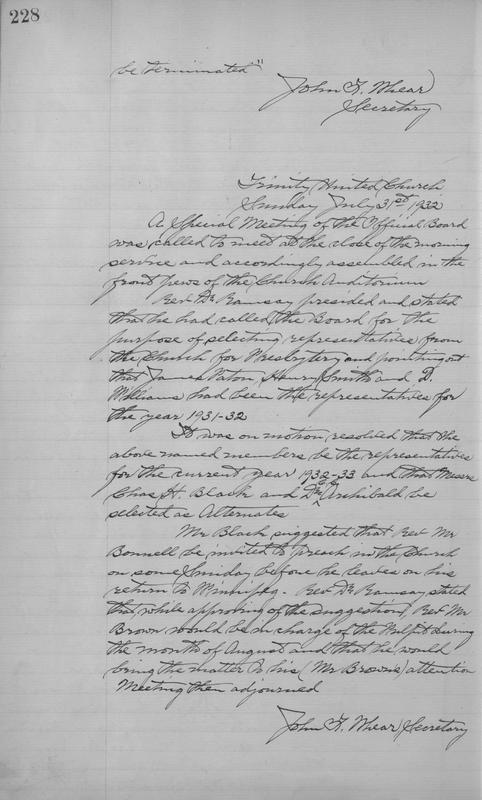 228
be terminated"
John F. Whear
Secretary
Trinity United Church
Sunday July 31st 1932
A Special Meeting of the Official Board
was called to meet at the close of the morning
service and accordingly assembled in the
front pews of the Church Auditorium
Rev. Dr. Ramsay presided and stated
that he had called the Board for the
purpose of selecting representatives from
the Church for Presbytery, and pointing out
that James Paton, Henry Smith and D.
Williams had been the representatives for
the year 1931-32
It was on motion resolved that the
above named members be the representatives
for the current year 1932-33 and that Messrs
Chas. H. Black and Dr. Archibald be
selected as Alternates
Mr Black suggested that Rev. Mr
Bonnell be invited to preach in the Church
on some Sunday before he leaves on his
return to Winnipeg. Rev. Dr. Ramsay stated
that, while approving of the suggestion, Rev. Mr
Brown would be in charge of the Pulpit during
the month of August and that he would
bring the matter to his (Mr Brown's) attention
Meeting then adjourned
John F. Whear Secretary